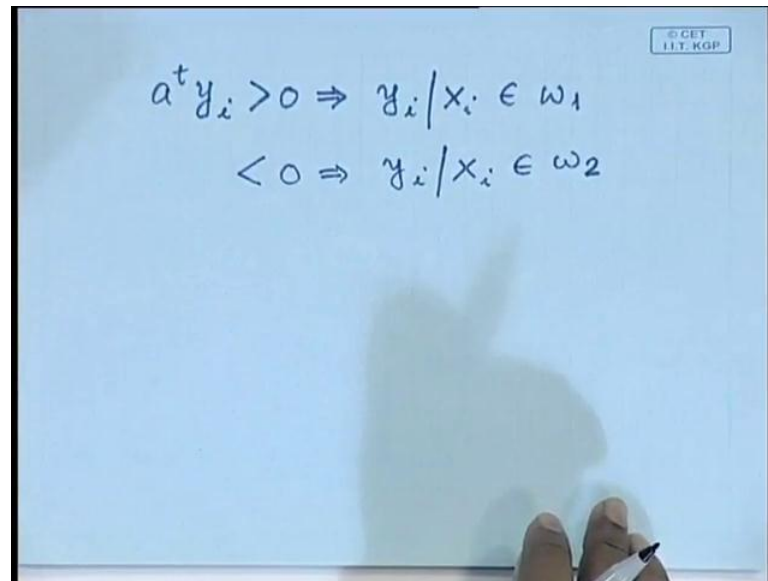 © CET
I.I.T. KGP
aᵗ yᵢ > 0 ⇒ yᵢ / xᵢ ∈ ω₁
< 0 ⇒ yᵢ / xᵢ ∈ ω₂